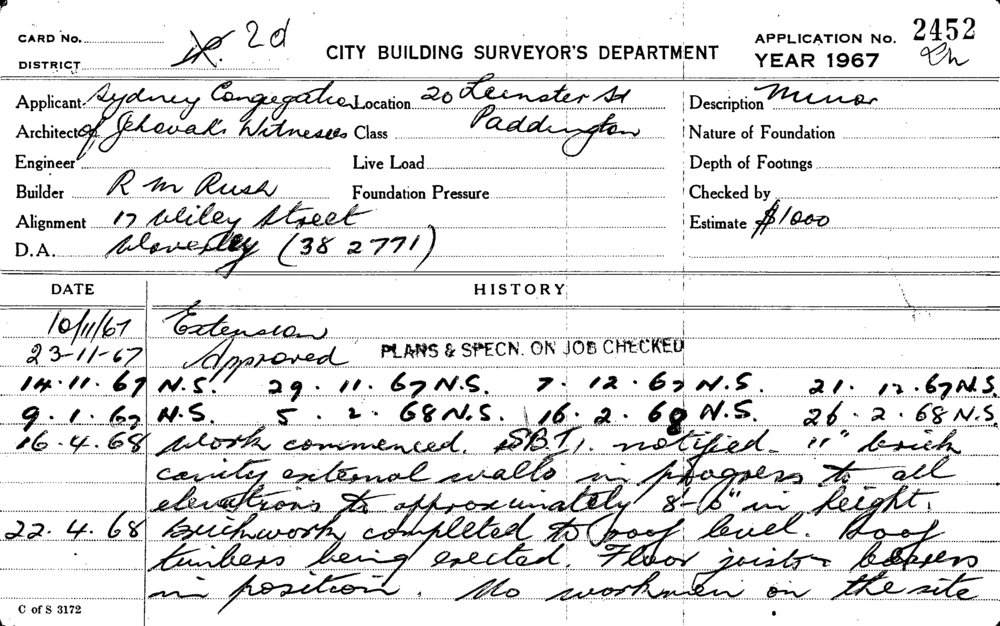 CARD No.
DISTRICT
2d
CITY BUILDING SURVEYOR'S DEPARTMENT
APPLICATION No. 2452
YEAR 1967
Applicant Sydney Congegation Location 20 Leinster St Description Minor
Architect of Jehovah's Witnesses Class Paddington Nature of Foundation
Engineer Live Load Depth of Footings
Builder R M Rush Foundation Pressure Checked by
Alignment 17 Wiley Street Estimate $1000
D.A. Waverley (38 2771)
DATE HISTORY
10/11/67 Extension
23-11-67 Approved PLANS & SPECN. ON JOB CHECKED
14.11.67 N.S. 29.11.67 N.S. 7.12.67 N.S. 21.12.67 N.S.
9.1.67 N.S. 5.2.68 N.S. 16.2.68 N.S. 26.2.68 N.S.
16.4.68 Work commenced. S.B.I. notified. 11" brick
cavity external walls in progress to all
elevations to approximately 8-6" in height.
22.4.68 Brickwork completed to roof level. Roof
timbers being erected. Floor joists bearers
in position. No workmen on the site
C of S 3172